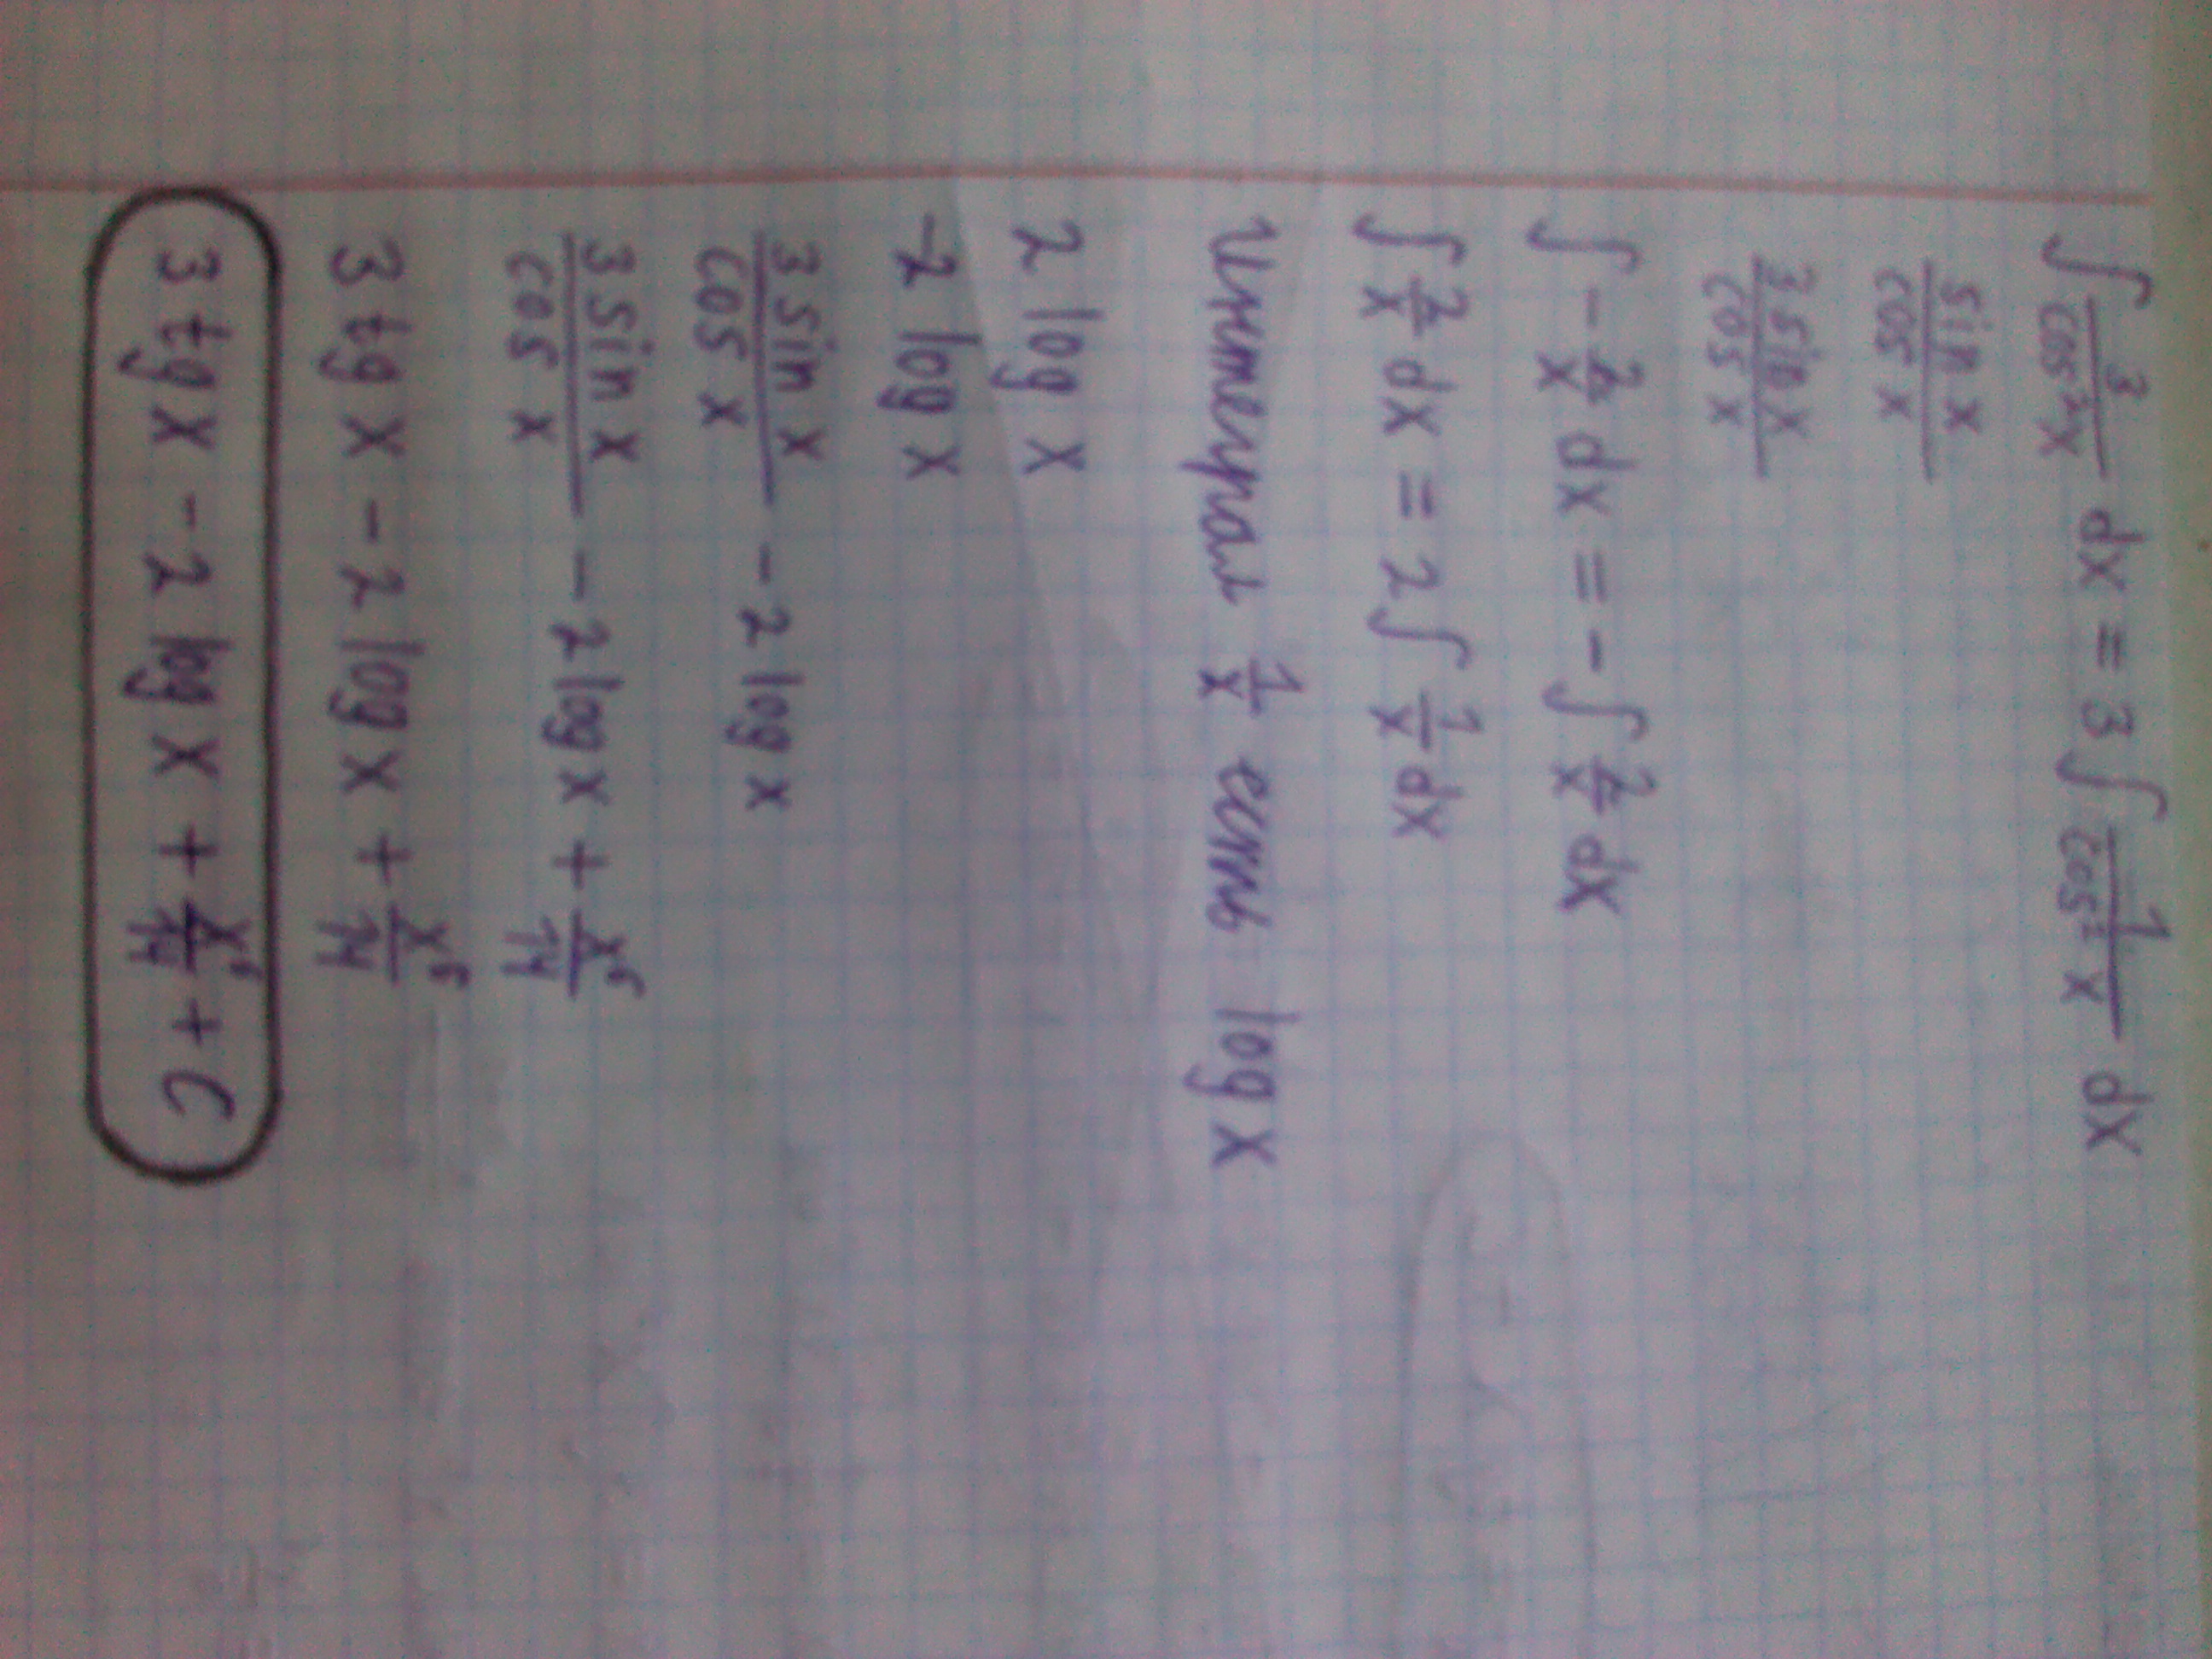 ∫ 3/cos²x dx = 3 ∫ 1/cos²x dx
sin x/cos x
3 sin x/cos x
∫ - 2/x dx = - ∫ 2/x dx
∫ 2/x dx = 2 ∫ 1/x dx
Интеграл 1/x есть log x
2 log x
-2 log x
3 sin x/cos x - 2 log x
3 sin x/cos x - 2 log x + x⁶/14
3 tg x - 2 log x + x⁶/14
3 tg x - 2 log x + x⁶/14 + C